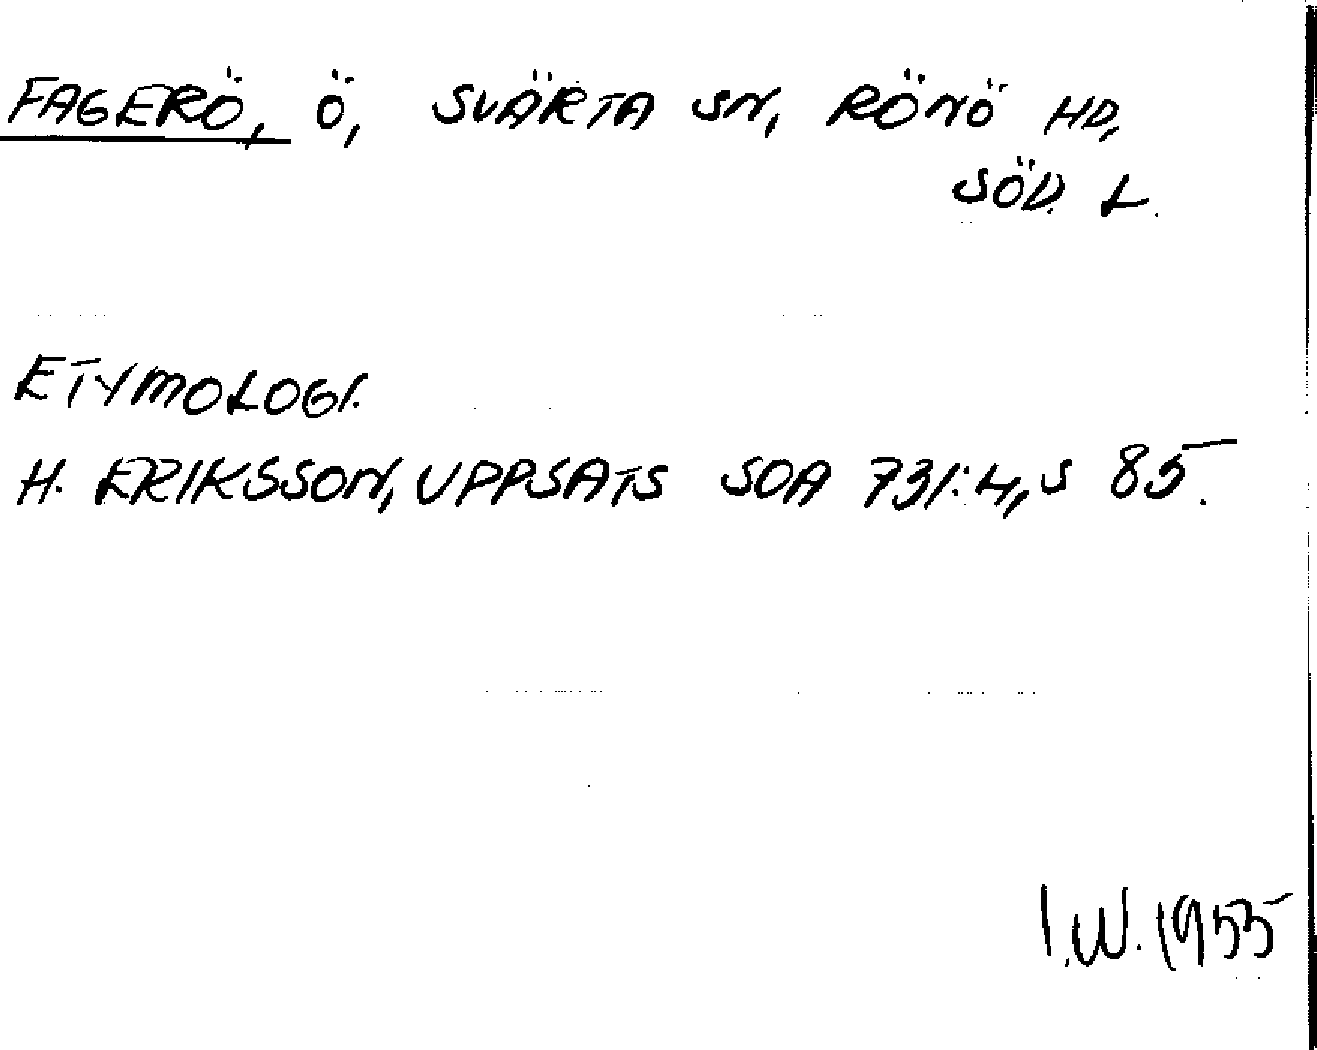 FAGERÖ, Ö, SVÄRTA SN, RÖNÖ HD,
SÖD. L.
ETYMOLOGI.
H. ERIKSSON, UPPSATS SOA 731:4, S 85.
I.W. 1955